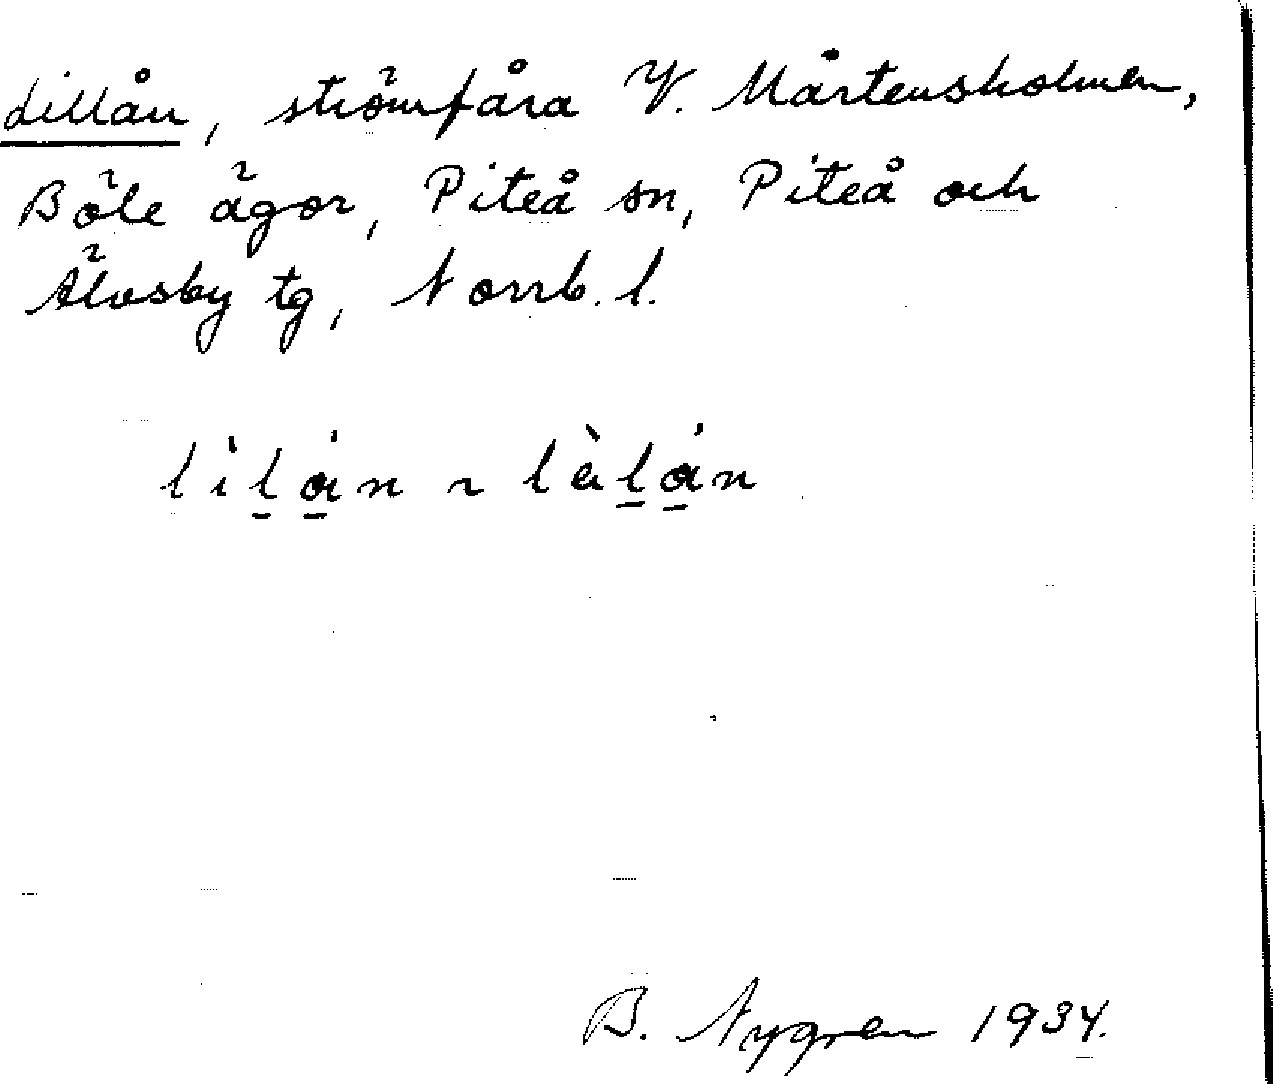 Lillån, strömfåra V. Mårtensholmen,
Böle ägor, Piteå sn, Piteå och
Älvsby tg, Norrb. l.
lìl̠a̠̍n ~ lèl̠a̠̍n
B. Nygren 1934.